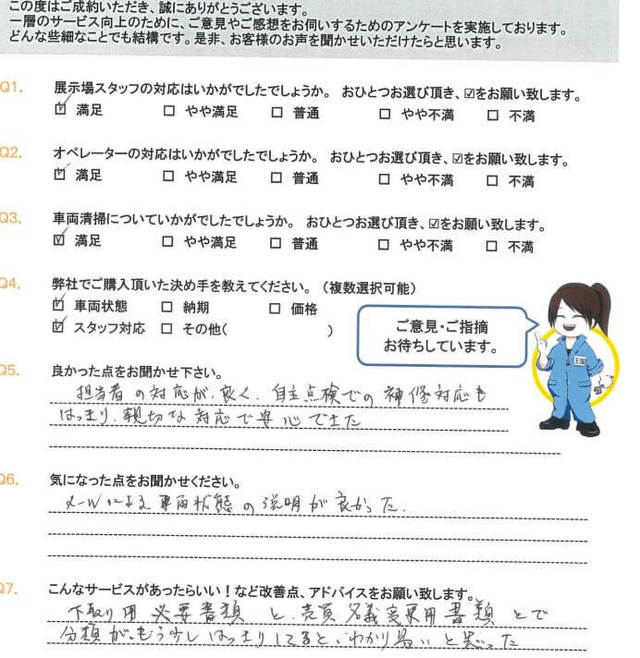 この度はご成約いただき、誠にありがとうございます。
一層のサービス向上のために、ご意見やご感想をお伺いするためのアンケートを実施しております。
どんな些細なことでも結構です。是非、お客様のお声を聞かせいただけたらと思います。
Q1. 展示場スタッフの対応はいかがでしたでしょうか。 おひとつお選び頂き、☑をお願い致します。
☑ 満足 □ やや満足 □ 普通 □ やや不満 □ 不満
Q2. オペレーターの対応はいかがでしたでしょうか。 おひとつお選び頂き、☑をお願い致します。
☑ 満足 □ やや満足 □ 普通 □ やや不満 □ 不満
Q3. 車両清掃についていかがでしたでしょうか。 おひとつお選び頂き、☑をお願い致します。
☑ 満足 □ やや満足 □ 普通 □ やや不満 □ 不満
Q4. 弊社でご購入頂いた決め手を教えてください。（複数選択可能）
☑ 車両状態 □ 納期 □ 価格
☑ スタッフ対応 □ その他( )
ご意見・ご指摘
お待ちしています。
Q5. 良かった点をお聞かせ下さい。
担当者の対応が良く、自主点検での補修対応も
はっきり、親切な対応で安心できた
Q6. 気になった点をお聞かせください。
メールによる車両状態の説明が良かった.
Q7. こんなサービスがあったらいい！など改善点、アドバイスをお願い致します。
下取り用必要書類と、売買名義変更用書類とで
分類が、もう少しはっきりしてると、わかり易いと思った